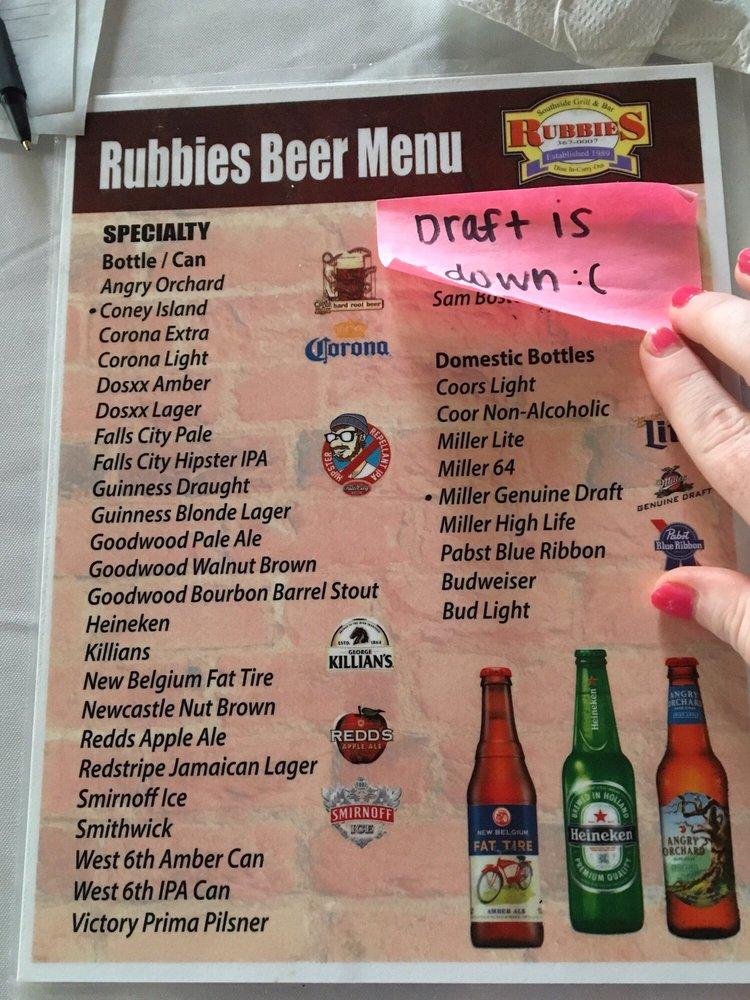 Rubbies Beer Menu
Southside Grill & Bar
RUBBIES
367-0007
Established 1989
Dine In-Carry Out
Draft is
down :(
SPECIALTY
Bottle / Can
Angry Orchard
• Coney Island
Corona Extra
Corona Light
Dosxx Amber
Dosxx Lager
Falls City Pale
Falls City Hipster IPA
Guinness Draught
Guinness Blonde Lager
Goodwood Pale Ale
Goodwood Walnut Brown
Goodwood Bourbon Barrel Stout
Heineken
Killians
New Belgium Fat Tire
Newcastle Nut Brown
Redds Apple Ale
Redstripe Jamaican Lager
Smirnoff Ice
Smithwick
West 6th Amber Can
West 6th IPA Can
Victory Prima Pilsner
hard root beer
Corona
HIPSTER
REPELLANT IPA
ESTD. 1864
GEORGE
KILLIAN'S
REDD'S
APPLE ALE
SMIRNOFF
ICE
Sam Bos
Domestic Bottles
Coors Light
Coor Non-Alcoholic
Miller Lite
Miller 64
• Miller Genuine Draft
Miller High Life
Pabst Blue Ribbon
Budweiser
Bud Light
Lit
Miller
GENUINE DRAFT
Pabst
Blue Ribbon
NEW BELGIUM
FAT TIRE
AMBER ALE
Heineken
BREWED IN HOLLAND
Heineken
PREMIUM QUALITY
ANGRY
ORCHARD
ANGRY
ORCHARD